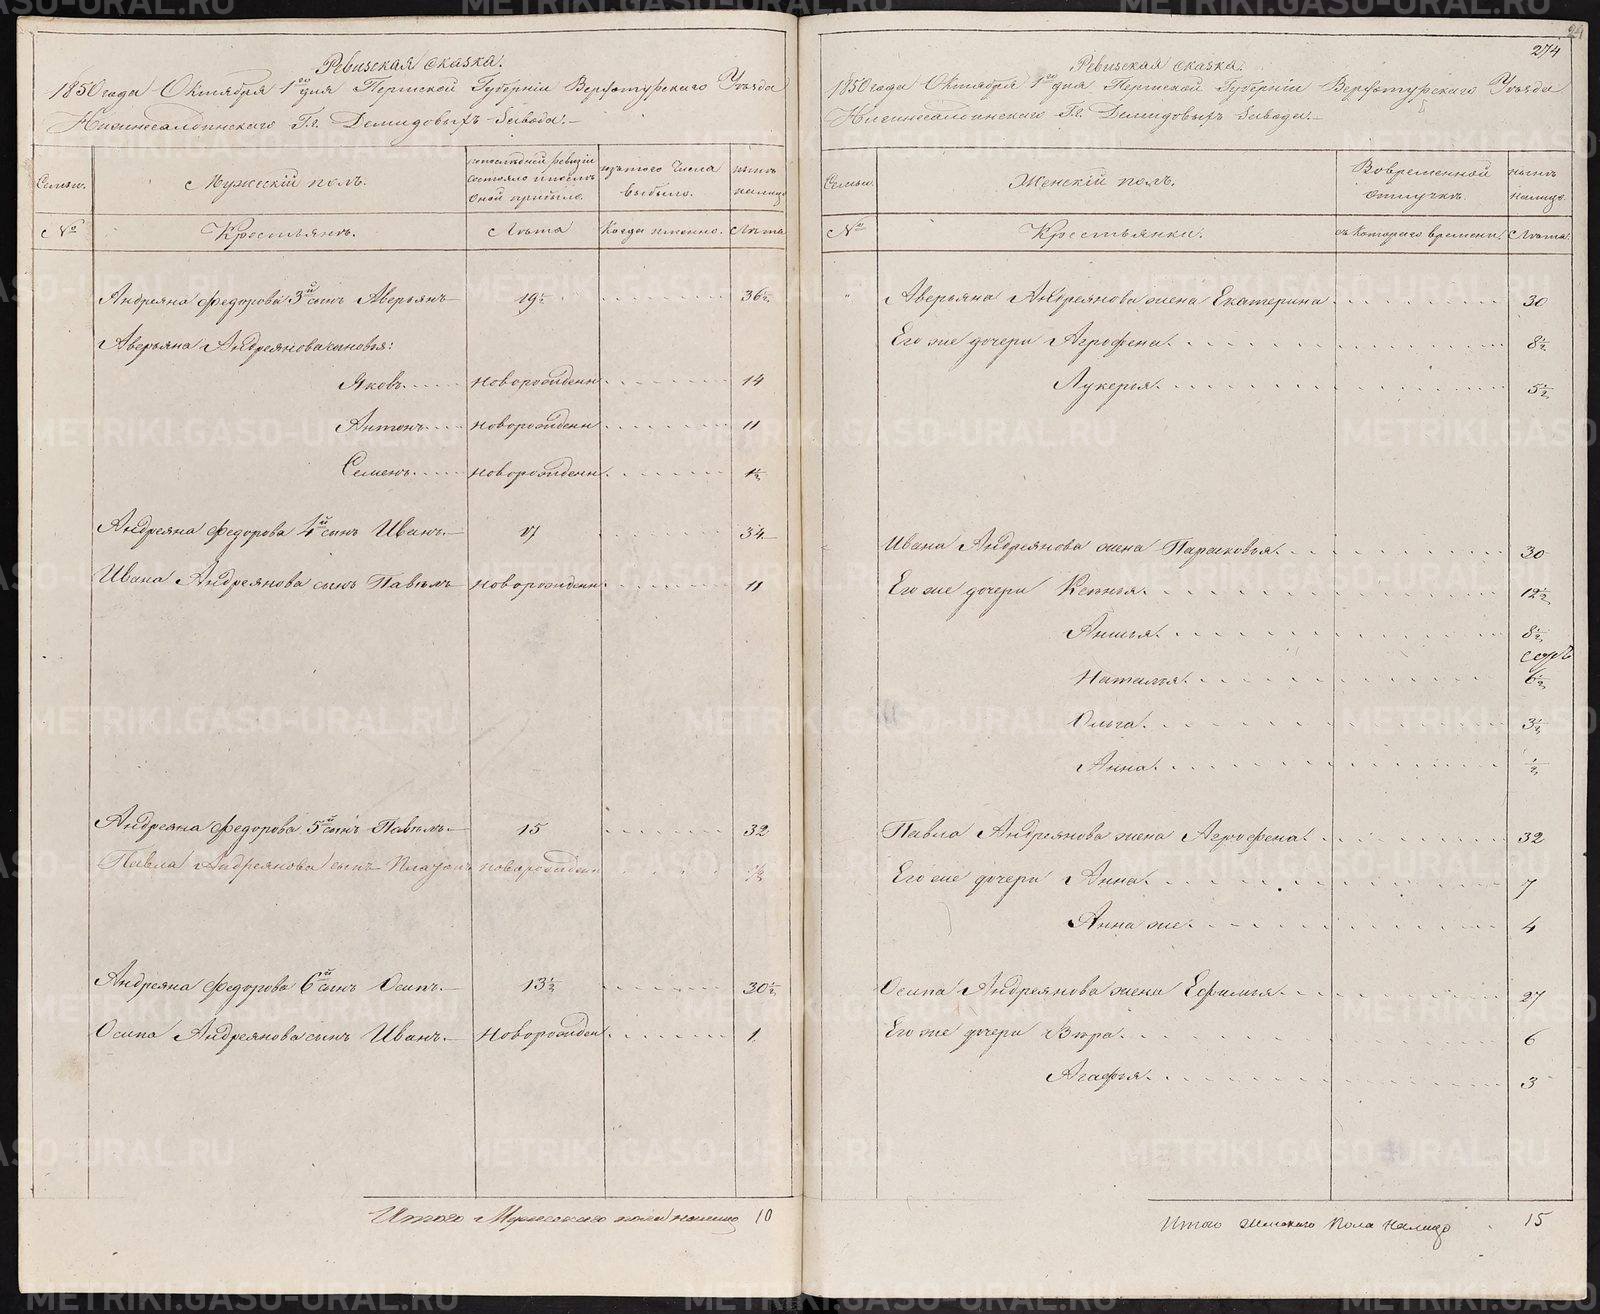 274
Ревизская сказка.
1850 года Октября 1го дня Пермской Губернии Верхотурского Уезда
Нижнесалдинского Гг. Демидовыхъ Завода.
Семьи.
Мужескій полъ.
По последней ревизіи состояло и после оной прибыло.
Изъ того числа выбыло.
Ныне на лицо
№
Крестьянъ.
Лѣта
Когда именно.
Лѣта
Андреяна Федорова 3й сынъ Аверьянъ 19½ 36½
Аверьяна Андреянова сыновья:
Яковъ новорожденн 14
Антонъ новорожденн 11
Семенъ новорожденн 1½
Андреяна Федорова 4й сынъ Иванъ. 17 34
Ивана Андреянова сынъ Павелъ новорожденн 11
Андреяна Федорова 5й сынъ Павелъ 15 32
Павла Андреянова сынъ новорожденн ½
Андреяна Федорова 6й сынъ Осипъ. 13½ 30½
Осипа Андреянова сынъ Иванъ. Новорожден 1
Итого Мужескаго пола налицо 10
Ревизская сказка.
1850 года Октября 1го дня Пермской Губерніи Верхотурскаго Уезда
Нижнесалдинскаго Гг. Демидовыхъ Завода.
Семьи.
Женскій полъ.
Во временной отлучке.
Ныне налицо.
№
Крестьянки.
съ котораго времени.
Лѣта.
Аверьяна Андреянова жена Екатерина 30
Его же дочери Агрофена. 8½
Лукерья. 5½
Ивана Андреянова жена Парасковья. 30
Его же дочери Ксенья. 12½
Анисья. 8½
Наталья. 6½
Ольга. 3½
Анна. ½
Павла Андреянова жена Агрофена. 32
Его же дочери Анна. 7
Анна же. 4
Осипа Андреянова жена Ефимья. 27
Его же дочери Вера. 6
Агафья. 3
Итого женскаго пола налицо 15
METRIKI.GASO-URAL.RU